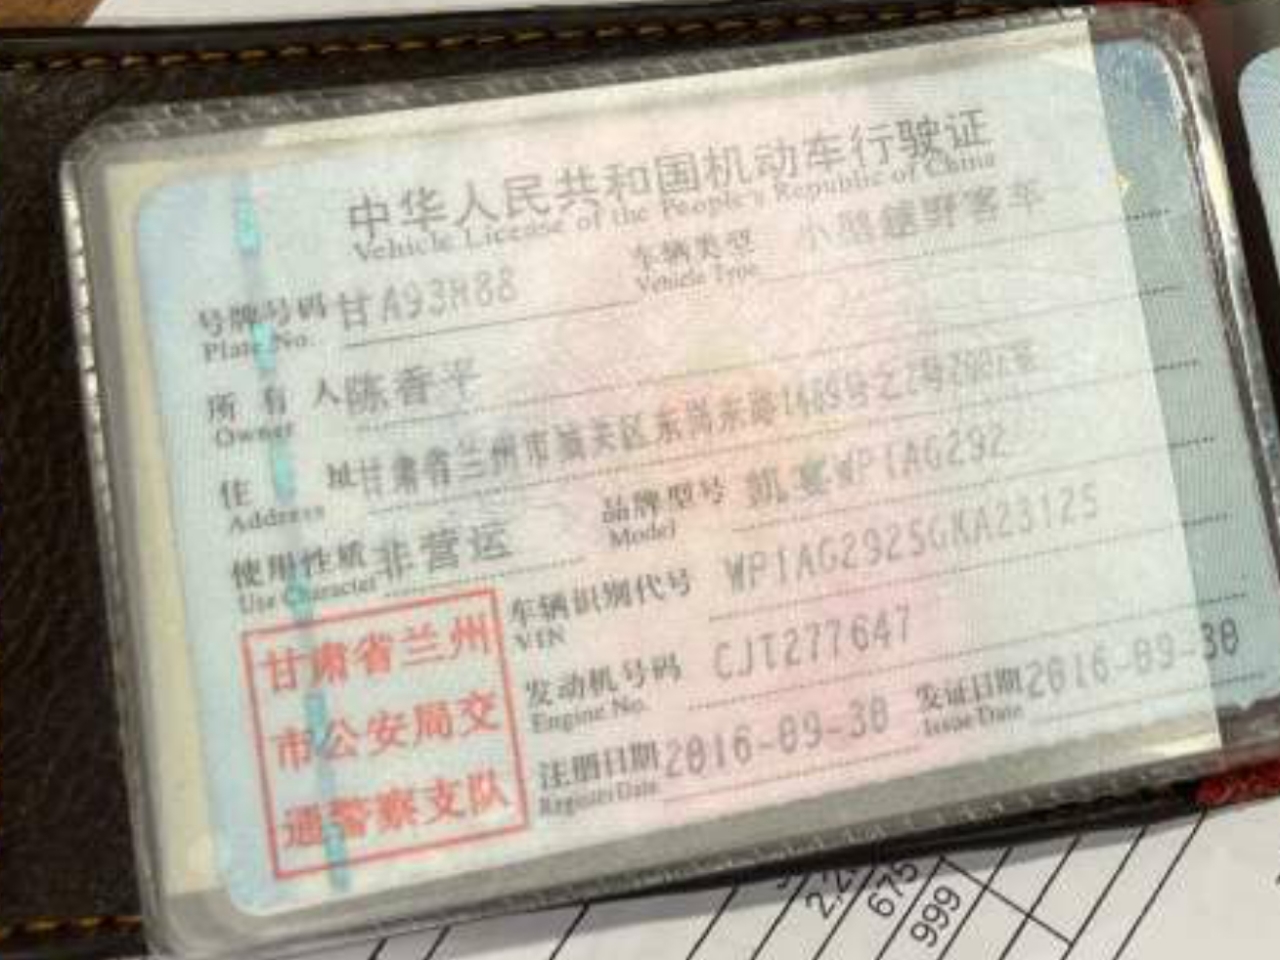 中华人民共和国机动车行驶证
Vehicle License of the People's Republic of China
号牌号码 甘A93H88 车辆类型 小型越野客车
Plate No. Vehicle Type
所有人 陈香平
Owner
住址 甘肃省兰州市城关区东岗东路1689号之2号
Address
使用性质 非营运 品牌型号 凯宴WP1AG292
Use Character Model
车辆识别代号 WP1AG2925GKA23125
VIN
发动机号码 CJT277647
Engine No.
注册日期 2016-09-30 发证日期 2016-09-30
Register Date Issue Date
甘肃省兰州
市公安局交
通警察支队
675
999